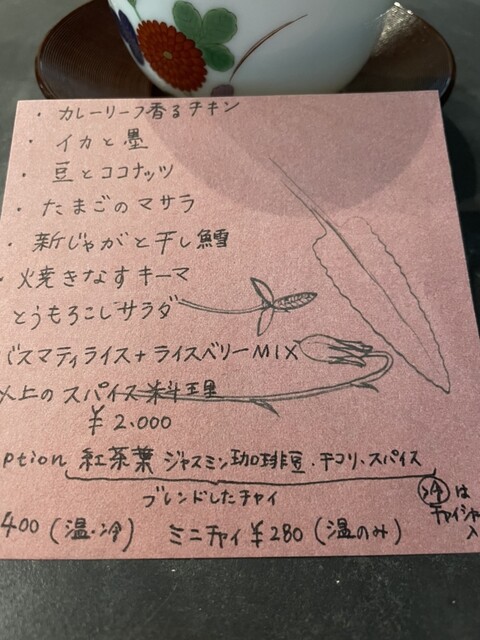 ・カレーリーフ香るチキン
・イカと墨
・豆とココナッツ
・たまごのマサラ
・新じゃがと干し鱈
・焼きなすキーマ
とうもろこしサラダ
バスマティライス+ライスベリーMIX
以上のスパイス料理
¥2,000
ption 紅茶葉 ジャスミン珈琲豆・チコリ、スパイス
ブレンドしたチャイ
400(温・冷) ミニチャイ¥280(温のみ)
冷は
チャイシャ
入